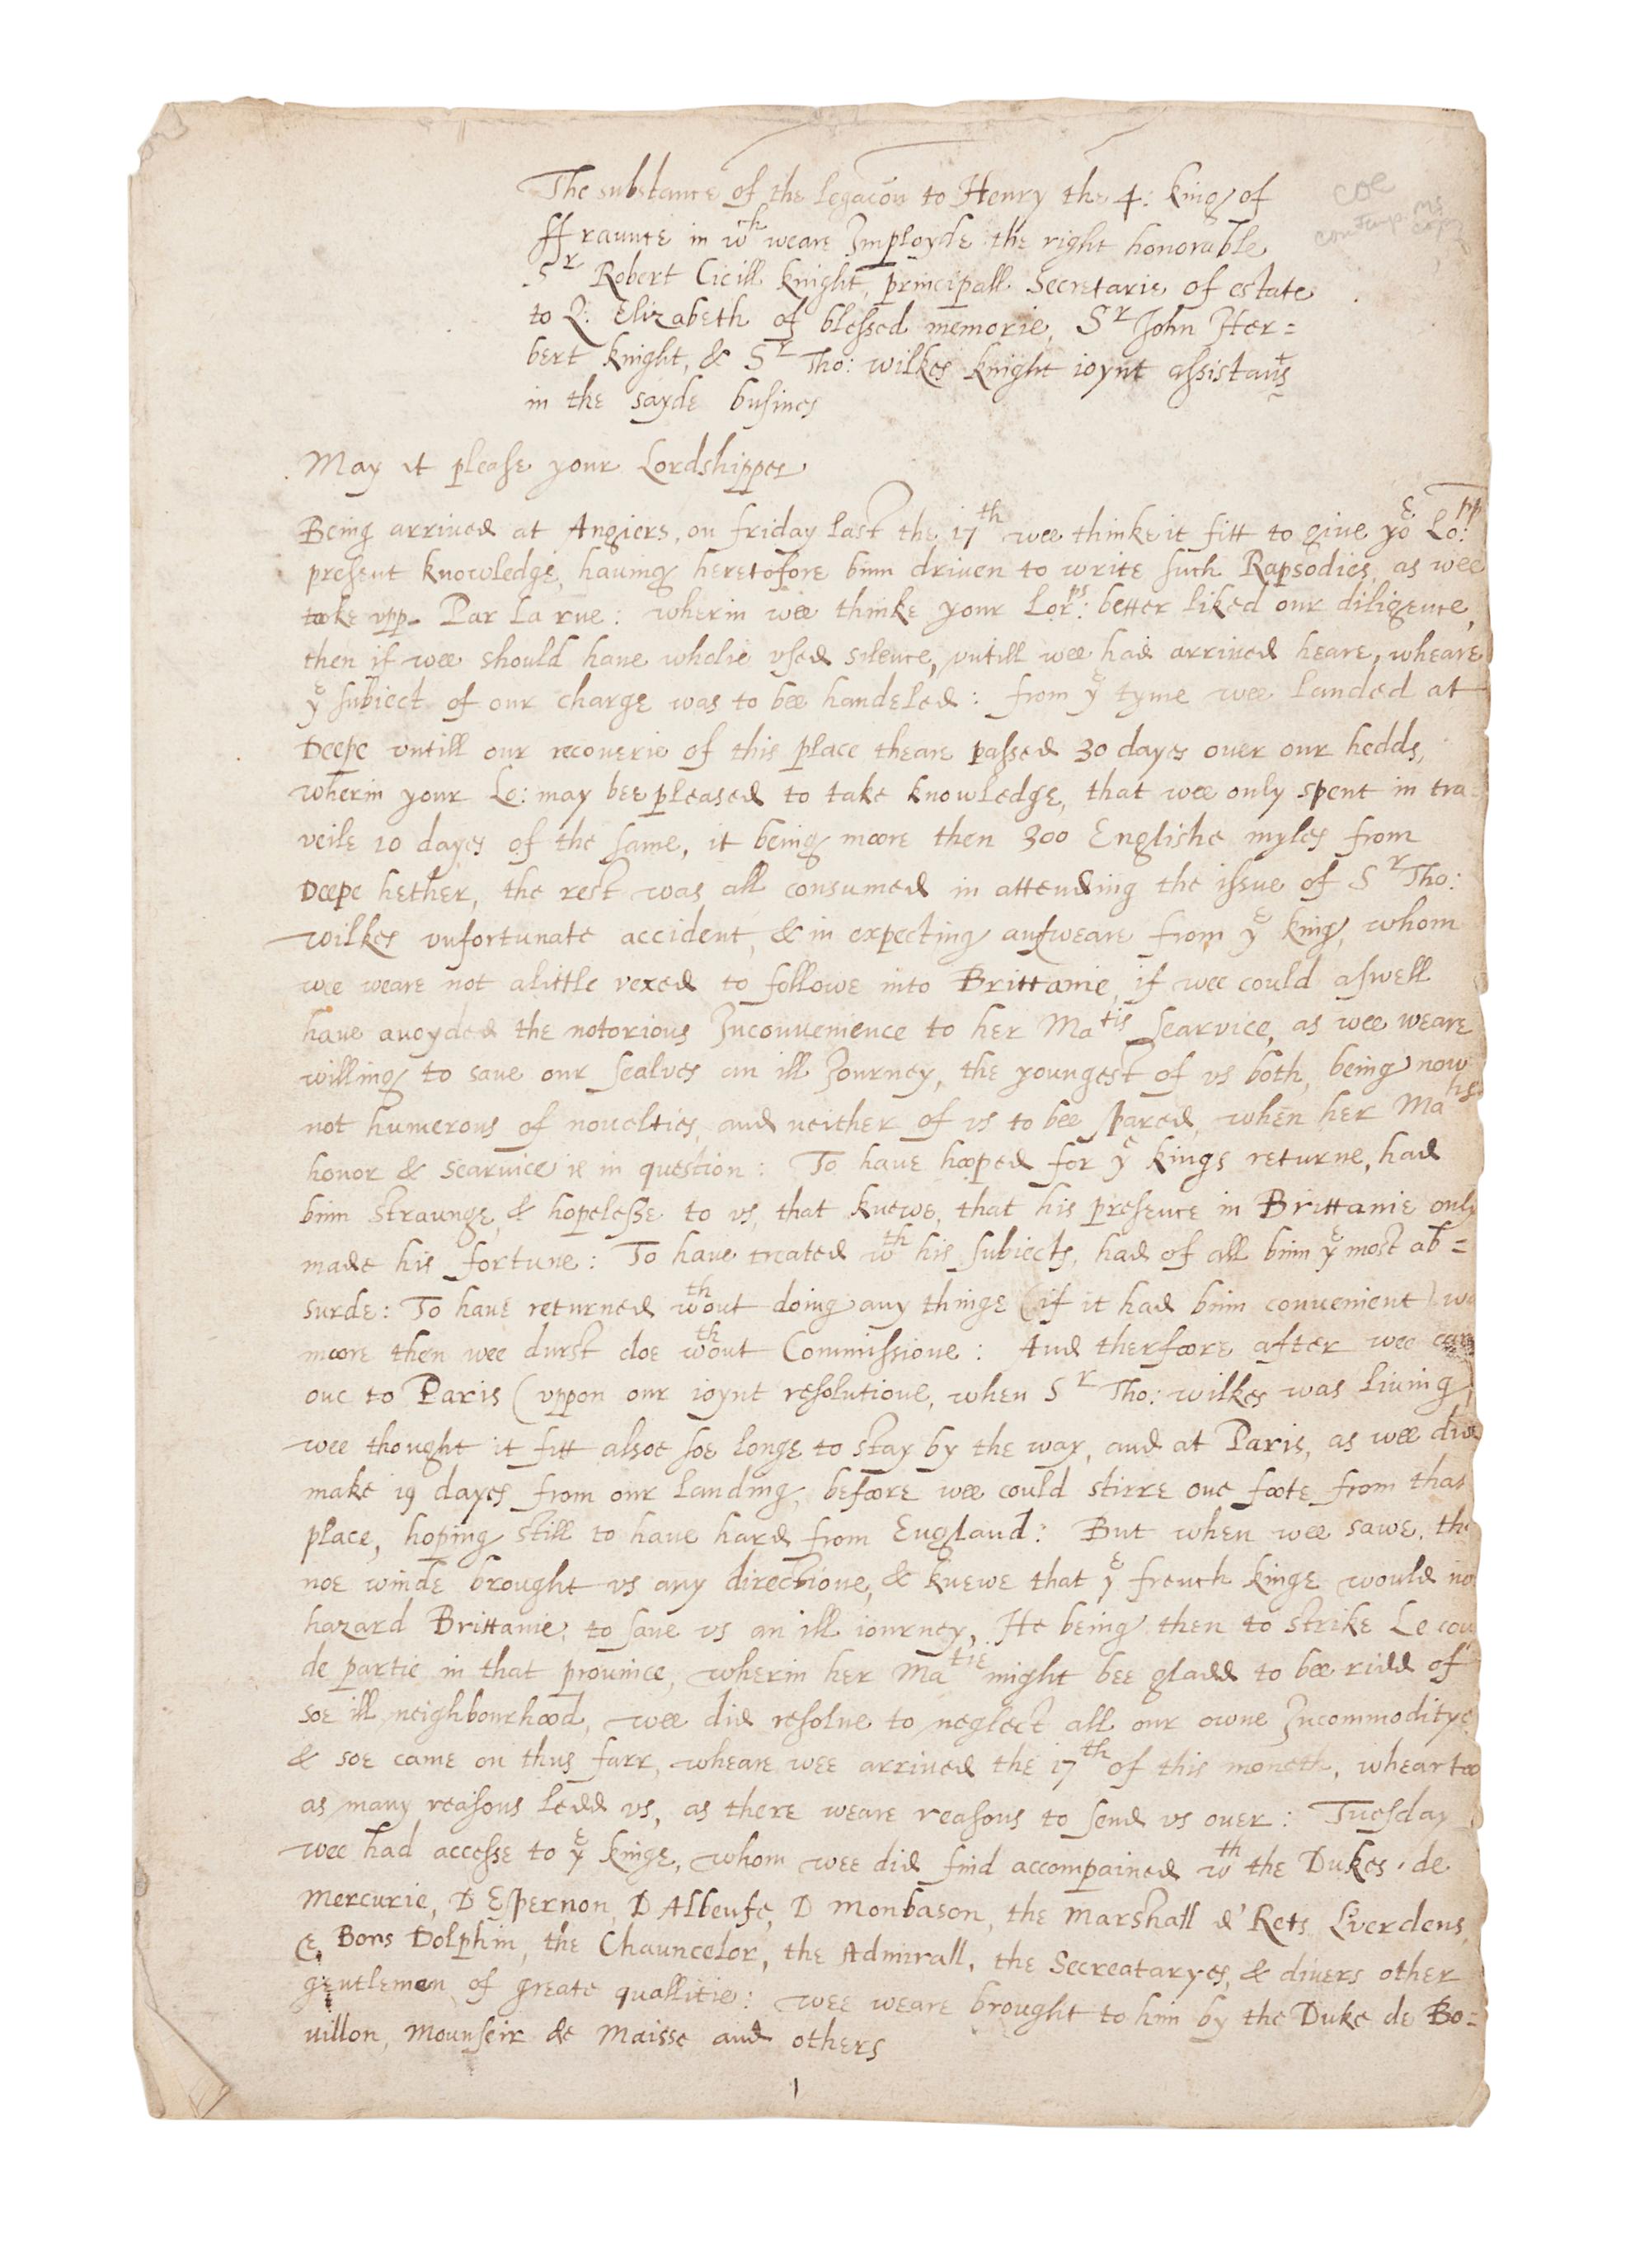 The substance of the legacon to Henry the 4: king of
ffraunce in wch weare Imployde the right honorable
Sr Robert Cicill knight, principall Secretarie of estate
to Q: Elizabeth of blessed memorie, Sr John Her=
bert knight, & Sr Tho: wilkes knight ioynt assistants
in the sayde busines
coe
contemp. MS
copy
May it please your Lordshippes
Being arrived at Angiers, on friday last the 17th wee thinke it fitt to give yor Lo:pp
present knowledge, having heretofore binn driven to write such Rapsodies, as wee
tooke upp Par la rue: wherin wee thinke your Lorps: better liked our diligence,
then if wee should have wholie used silence, untill wee had arrived heare, wheare
ye subiect of our charge was to bee handeled: from ye tyme wee landed at
Deepe untill our recoverie of this place theare passed 30 dayes over our hedds,
wherin your Lo: may bee pleased to take knowledge, that wee only spent in tra
veile 10 dayes of the same, it being moore then 300 Englishe myles from
Deepe hether, the rest was all consumed in attending the issue of Sr Tho:
wilkes unfortunate accident, & in expecting answeare from ye king, whom
we weare not alittle vexed to followe into Brittanie, if wee could aswell
have avoyded the notorious Inconvenience to her Matis searvice, as wee weare
willing to save our sealves an ill Journey, the youngest of us both, being now
not humerous of novelties, and neither of us to bee spared, when her Matis
honor & searvice is in question: To have hooped for ye kings returne, had
binn straunge, & hopelesse to us, that knewe, that his presence in Brittanie only
made his fortune: To have treated wth his subiects, had of all binn ye most ab=
surde: To have returned wthout doing any thinge (if it had binn convenient) wa
moore then wee durst doe wthout Commissione: And therfoore after wee
one to Paris (uppon our ioynt resolutione, when Sr Tho: wilkes was living
wee thought it fitt alsoe soe longe to stay by the way, and at Paris, as wee did
make 19 dayes from our landing, befoore wee could stirre one foote from that
place, hoping still to have hard from England: But when wee sawe, tha
noe winde brought us any directione, & knewe that ye french kinge would no
hazard Brittanie, to save us an ill iourney, He being then to strike Le cou
de partie in that province, wherin her Matie might bee gladd to bee ridd of
soe ill neighbourhood, wee did resolve to neglect all our owne Incommoditye
& soe came on thus farr, wheare wee arrived the 17th of this moneth, wheartoo
as many reasons ledd us, as there weare reasons to send us over: Tuesday
wee had accesse to ye kinge, whom wee did find accompained wth the Dukes, de
Mercurie, D Espernon, D Albeufe, D Monbason, the Marshall d' Rets, Lverdens,
& Bons Dolphin, the Chauncelor, the Admirall, the Secreataryes, & divers other
gentlemen of greate quallitie: wee weare brought to him by the Duke de Bo=
uillon, Mounseir de Maisse and others
1